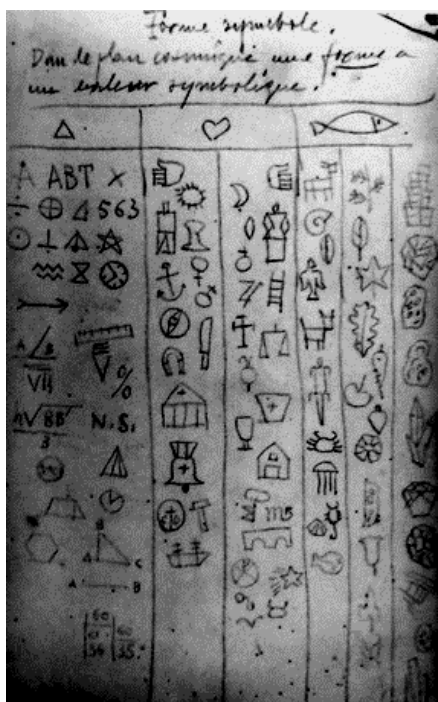 Forme symbole.
Dan le plan cosmique une forme a
un valeur symbolique.
A ABT X
÷ 563
A B
%
N.S.
3
B
A C
A B
60
60
35